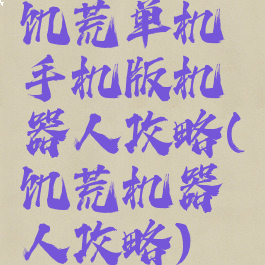 饥荒单机
手机版机
器人攻略(
饥荒机器
人攻略)